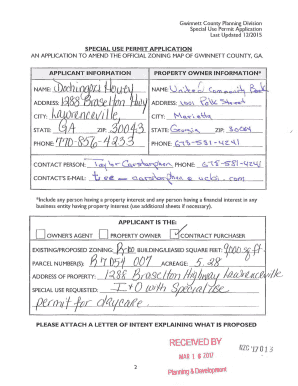 Gwinnett County Planning Division
Special Use Permit Application
Last Updated 12/2015
SPECIAL USE PERMIT APPLICATION
AN APPLICATION TO AMEND THE OFFICIAL ZONING MAP OF GWINNETT COUNTY, GA.
APPLICANT INFORMATION
NAME:
ADDRESS: 1288 Braselton Hwy
CITY: Lawrenceville
STATE: GA ZIP: 30043
PHONE: 770-856-4233
PROPERTY OWNER INFORMATION*
NAME: United Community Bank
ADDRESS: 1001 Polk Street
CITY: Marietta
STATE: Georgia ZIP: 30064
PHONE: 678-581-4241
CONTACT PERSON: Taylor PHONE: 678-581-4241
CONTACT'S E-MAIL:
*Include any person having a property interest and any person having a financial interest in any
business entity having property interest (use additional sheets if necessary).
APPLICANT IS THE:
OWNER'S AGENT PROPERTY OWNER CONTRACT PURCHASER
EXISTING/PROPOSED ZONING: BUILDING/LEASED SQUARE FEET: 9000 sq ft.
PARCEL NUMBER(S): R7054 007 ACREAGE: 5.28
ADDRESS OF PROPERTY: 1288 Braselton Highway Lawrenceville
SPECIAL USE REQUESTED: with Special Use
permit for daycare.
PLEASE ATTACH A LETTER OF INTENT EXPLAINING WHAT IS PROPOSED
RECEIVED BY
MAR 16 2017
Planning & Development
2